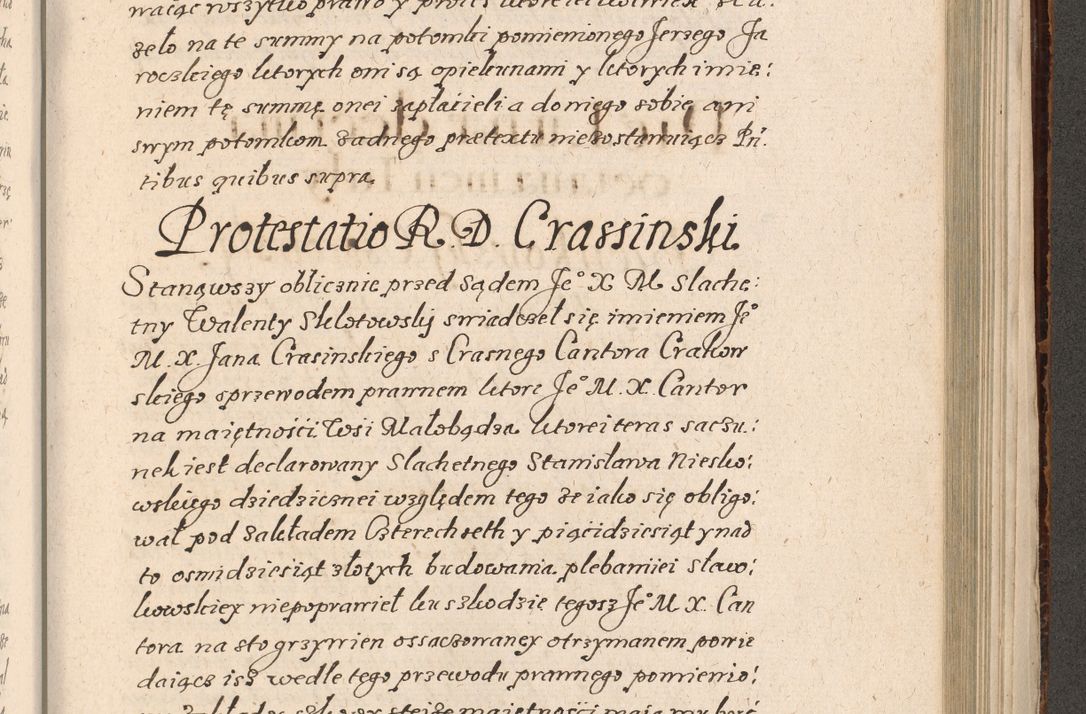 zelo na te summy na potomki pomienionego Jerzego Ja
roczkiego ktorych oni są opiekunami y ktorych imie:
niem tę summę onei zapłacieli a do niego sobie ani
swym potomkom żadnego prætextu niezostawuiącz Pń.
tibus quibus supra
Protestatio R. D. Crassinski
Stanąwszy oblicznie przed Sądem Jeº X M Slache:
tny Walenty Sklotowskj swiadczeł się imieniem Jeº
M. X. Jana Crasinskiego s Crasnego Cantora Crakow
skiego sprzewodem prawnem ktore Jeº M. X. Cantor
na maiętności Wsi Małobądza ktorei teras saczu:
nek iest declarowany Slachetnego Stanisława Niesko:
wskiego dziedzicznei względem tego że iako się obligo:
wał pod Zakładem Czterechseth y pięćidziesiąt y nad
to osmidziesiąt złotych budowania plebaniiei sławo:
kowskiey niepoprawieł ku szkodzie tegosz Jeº M X. Can
tora na sto grzywien ossaczowaney otrzymanem powie
daiącz isz wedle tego przewodu prawnego pomienio: